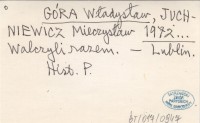 GÓRA Władysław, JUCH-
NIEWICZ Mieczysław 1972...
Walczyli razem. — Lublin.
Hist. P.